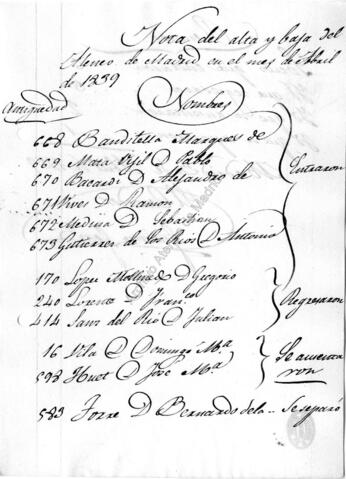 Nota del alta y baja del
Ateneo de Madrid en el mes de Abril
de 1839
Antiguedad Nombres
668 Banditella Marques de
669 Mata Vijil D Pablo
670 Bacardi D Alejandro de
671 Vives D Ramon
672 Medina D Sebastian
673 Gutierrez de los Rios D Antonio
Entraron
170 Lopez Mollinedo D Gregorio
240 Lorente D Franco
414 Sanz del Rio D Julian
Regresaron
16 Vila D Domingo Mª
598 Huet D Jose Mª
Se ausenta
ron
583 Torre D Bernardo de la .. Se separó